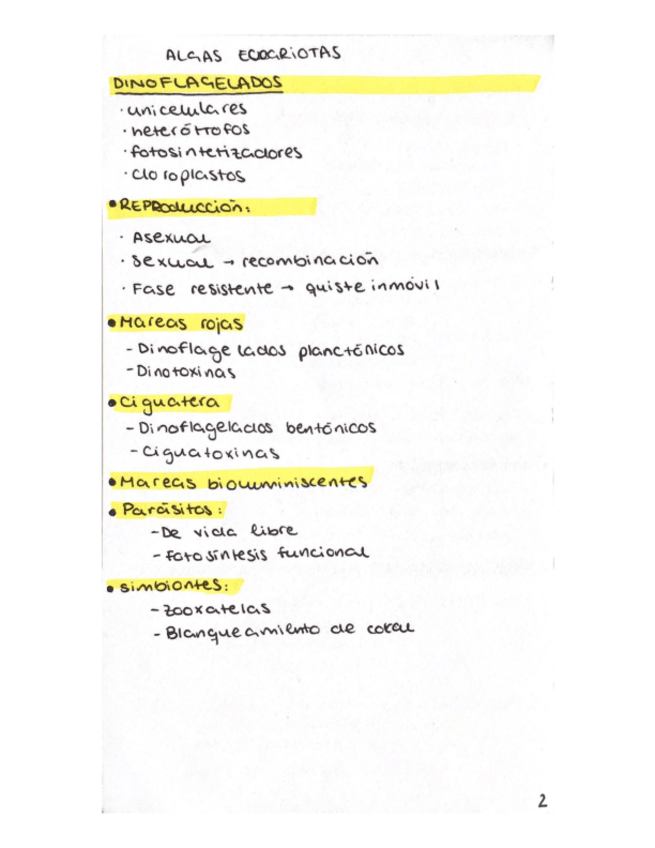 ALGAS EUCARIOTAS
DINOFLAGELADOS
· unicelulares
· heterótrofos
· fotosintetizadores
· cloroplastos
• REPRoducción:
· Asexual
· sexual → recombinación
· Fase resistente → quiste inmóvil
• Mareas rojas
- Dinoflagelados planctónicos
- Dinotoxinas
• Ciguatera
- Dinoflagelados bentónicos
- Ciguatoxinas
• Mareas bioluminiscentes
• Parásitos:
- De vida libre
- fotosíntesis funcional
• simbiontes:
- zooxatelas
- Blanqueamiento de coral
2